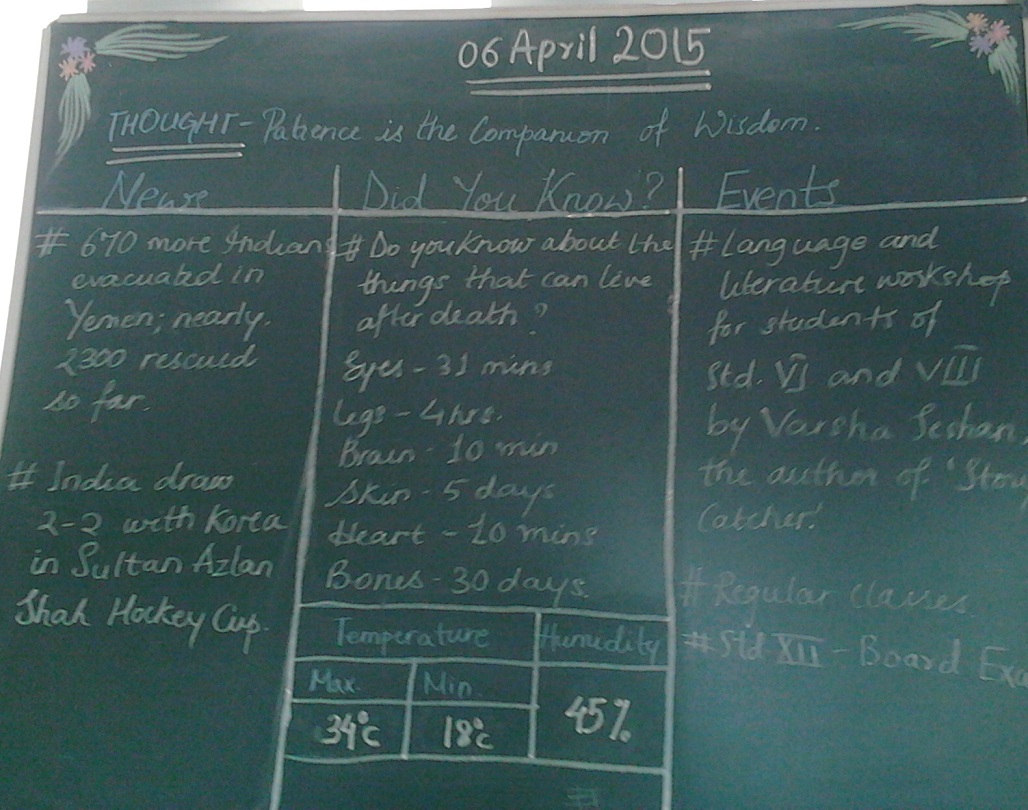 06 April 2015
THOUGHT - Patience is the Companion of Wisdom.
News
# 670 more Indians
evacuated in
Yemen; nearly.
2300 rescued
so far.
# India draw
2-2 with Korea
in Sultan Azlan
Shah Hockey Cup.
Did You Know?
# Do you know about the
things that can live
after death?
Eyes - 31 mins
Legs - 4 hrs.
Brain - 10 min
Skin - 5 days
Heart - 10 mins
Bones - 30 days.
Temperature
Humidity
Max.
Min.
34°c
18°c
45%
Events
# Language and
literature workshop
for students of
Std. VI and VIII
by Varsha Seshan,
the author of 'Story
Catcher!
# Regular classes
# Std XII - Board Exa